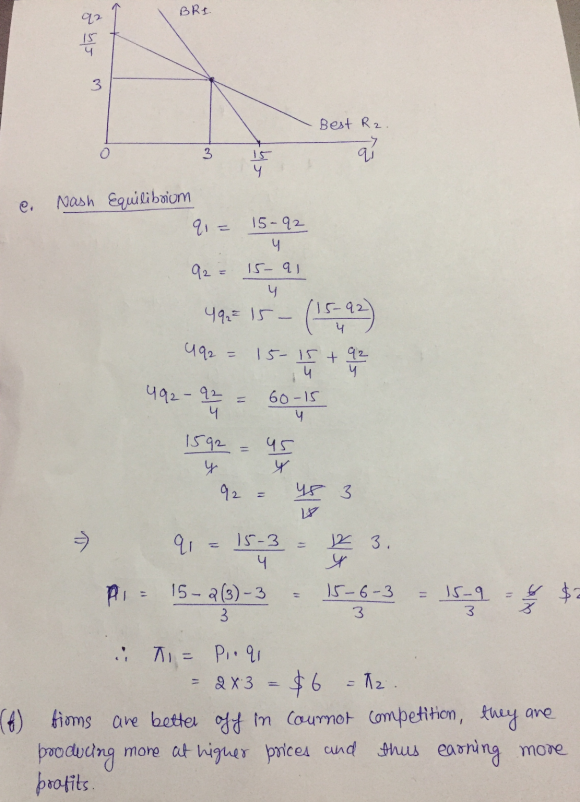 q2
BR1
15/4
3
Best R2.
0
3
15/4
q1
e. Nash Equilibrium
q1 = (15 - q2)/4
q2 = (15 - q1)/4
4q2 = 15 - ((15 - q2)/4)
4q2 = 15 - 15/4 + q2/4
4q2 - q2/4 = (60 - 15)/4
15q2/4 = 45/4
q2 = 45/15 3
⇒ q1 = (15 - 3)/4 = 12/4 3.
P1 = (15 - 2(3) - 3)/3 = (15 - 6 - 3)/3 = (15 - 9)/3 = 6/3 $2
∴ π1 = P1 · q1
= 2 × 3 = $6 = π2.
(f) firms are better off in Cournot competition, they are
producing more at higher prices and thus earning more
profits.